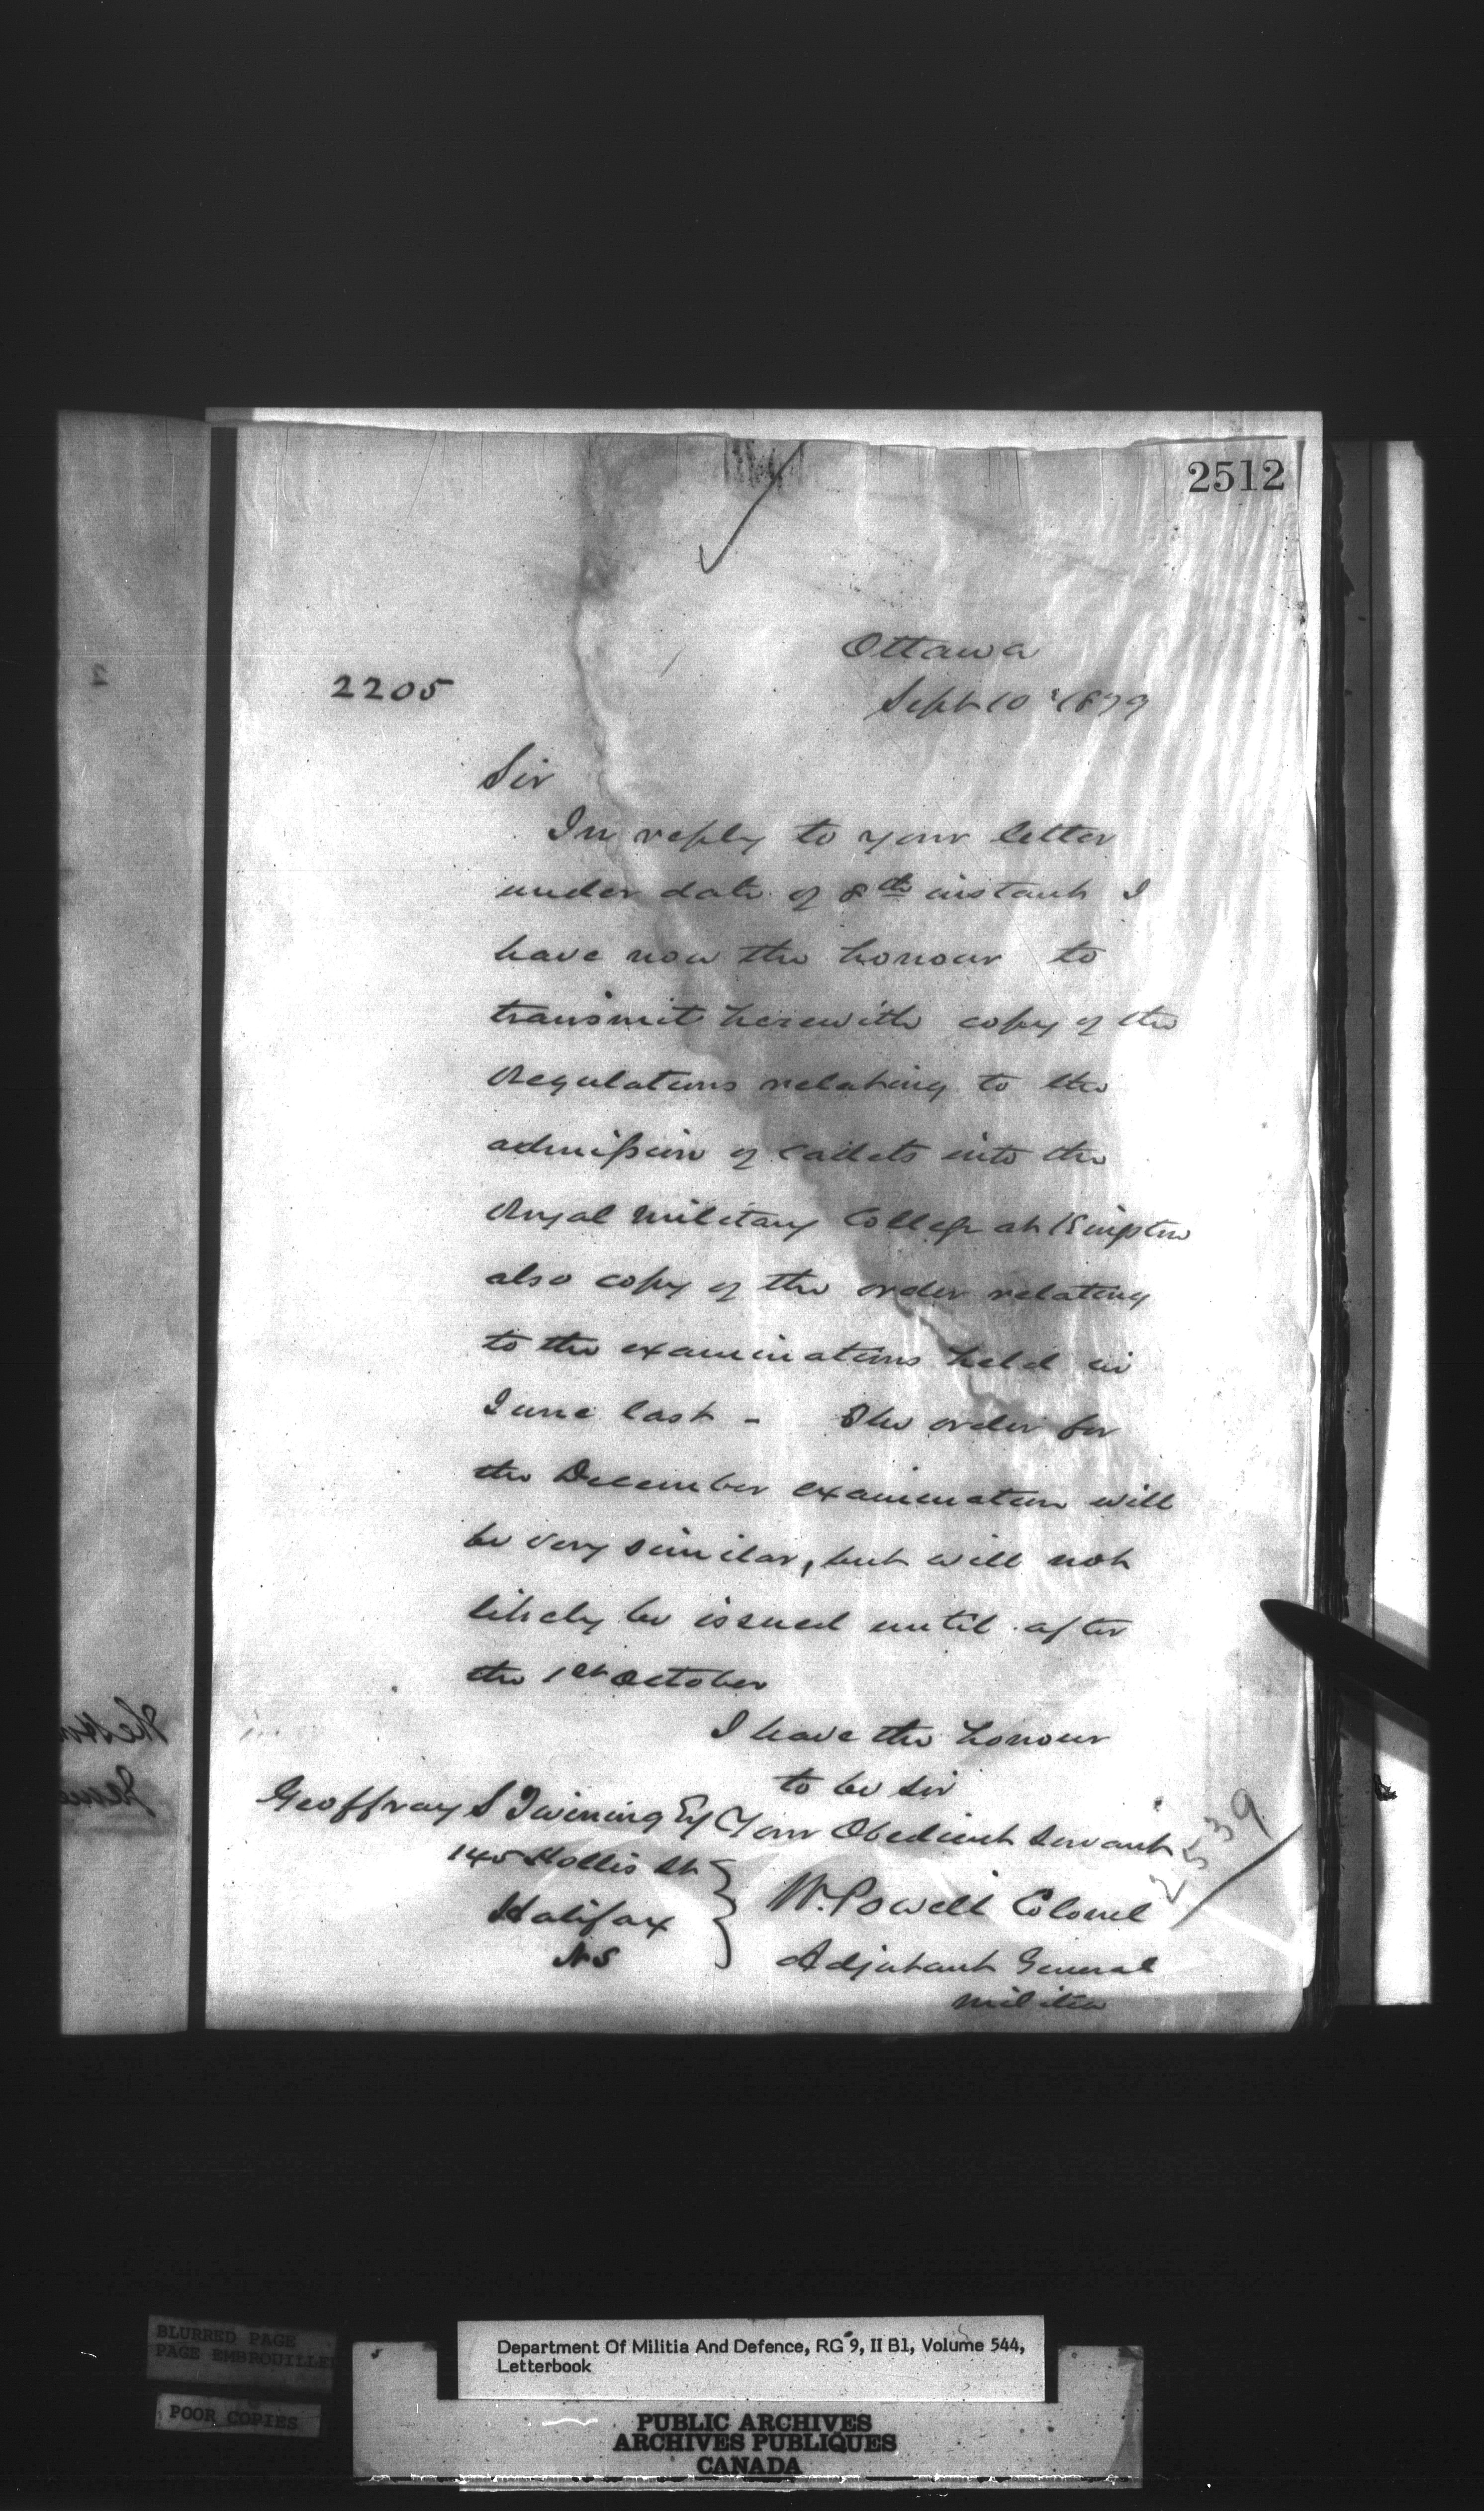 2512
Ottawa
2205
Sept 10 1879
Sir
In reply to your letter
under date of 8th instant I
have now the honour to
transmit herewith copy of the
Regulations relating to the
admission of Cadets into the
Royal Military College at Kingston
also copy of the order relating
to the examinations held in
June last - The order for
the December examination will
be very similar, but will not
likely be issued until after
the 1st October
I have the honour
to be Sir
Your Obedient Servant
W. Powell Colonel
Adjutant General
Militia
Geoffray S Twining Esq
145 Hollis St
Halifax
NS
2539
BLURRED PAGE
PAGE EMBROUILLEE
POOR COPIES
Department Of Militia And Defence, RG 9, II B1, Volume 544,
Letterbook
PUBLIC ARCHIVES
ARCHIVES PUBLIQUES
CANADA